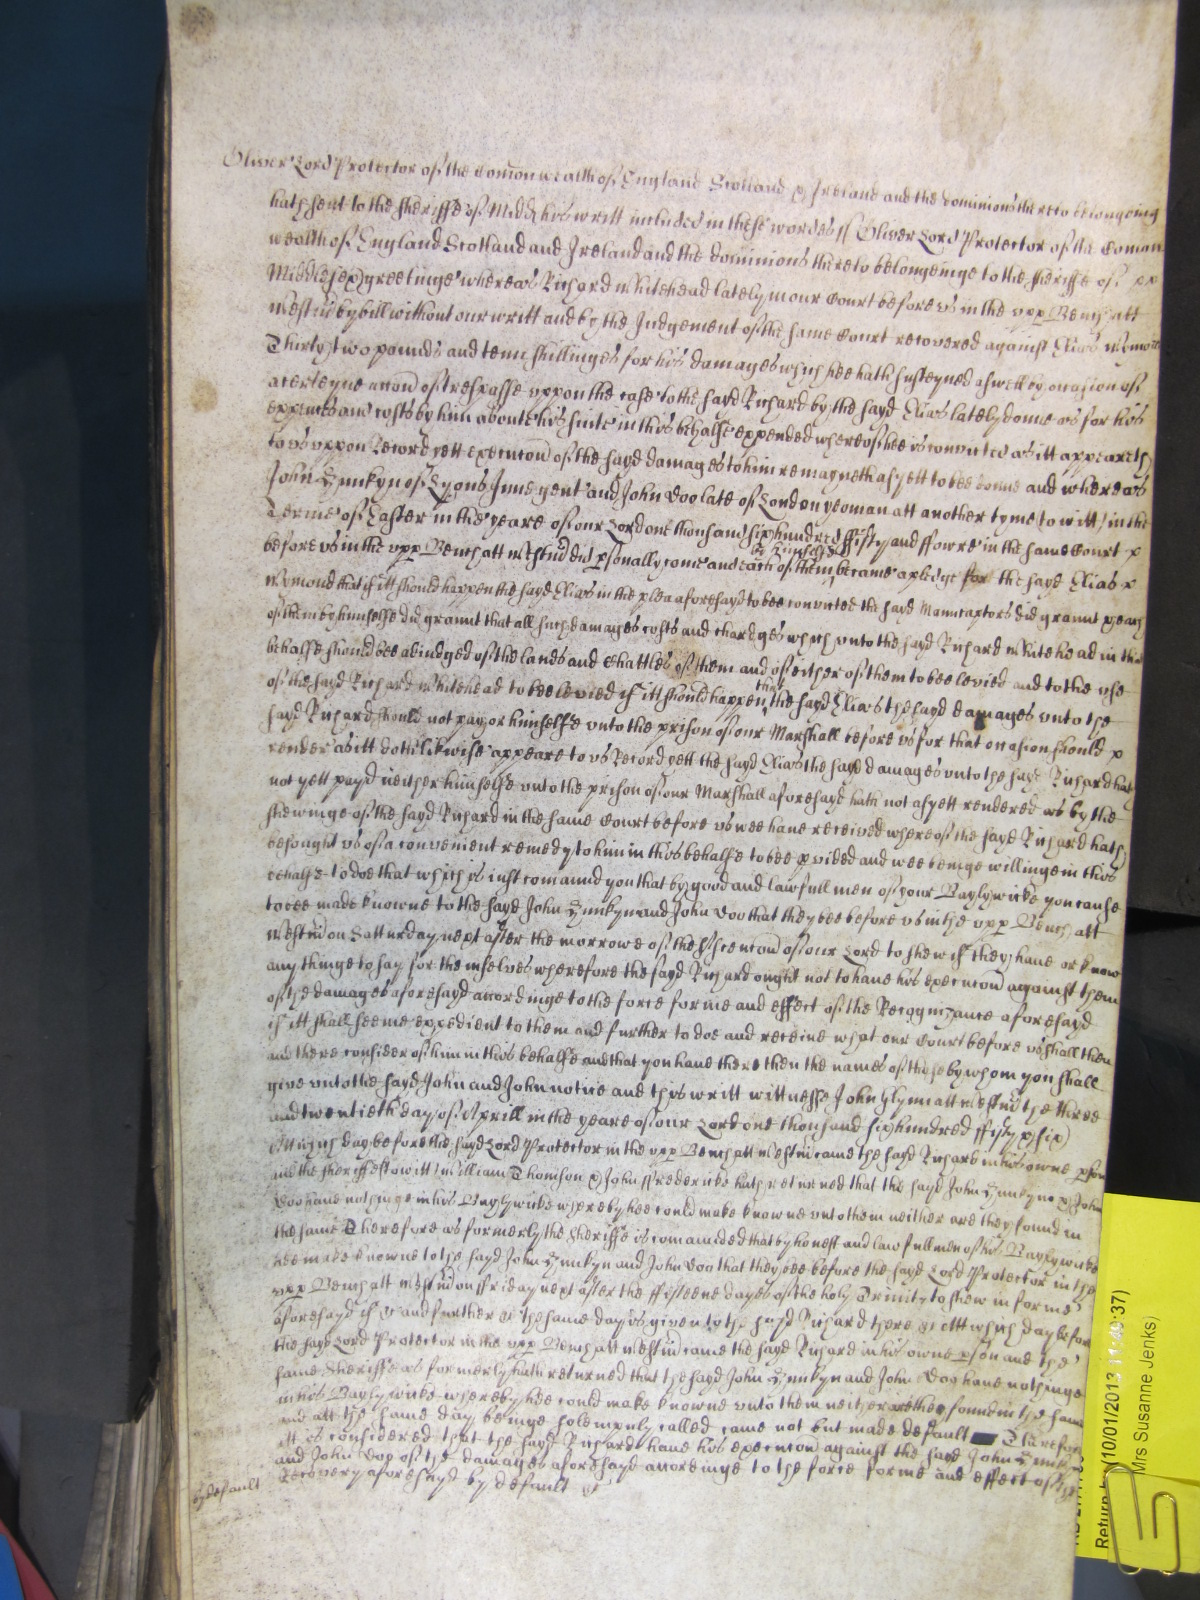 Oliver Lord Protector of the Comonwealth of England Scotland & Ireland and the dominions thereto belongeing
hath sent to the sheriffe of Midd his writt included in these wordes ss Oliver Lord Protector of the Comon
wealth of England Scotland and Ireland and the dominions thereto belongeinge to the sheriffe of
Middlesex greetinge whereas Richard Whitehead lately in our Court before us in the upp Bench att
Westm by bill without our writt and by the Judgement of the same Court recovered against Elias
Thirty two pounds and tenn shillinges for his damages which hee hath susteyned aswell by occasion of
a certeyne accon of trespasse uppon the case to the sayd Richard by the sayd Elias lately donne as for his
expences and costs by him about his suite in this behalfe expended whereof hee is convicted as itt appeareth
to us uppon Record yett execucon of the sayd damages to him remayneth as yett to bee donne and whereas
John Jenkyn of Lyons Inne gent and John Doo late of London yeoman att another tyme to witt in the
Terme of Easter in the yeare of our Lord one thousand six hundred fifty and fowre in the same Court
before us in the upp Bench att Westm did psonally come and each of them by himselfe became a pledge for the sayd Elias
Wymond that if itt should happen the sayd Elias in the plea aforesayd to bee convicted the sayd Manucaptors did graunt & each
of them by himselfe did graunt that all such damages costs and chardges which unto the sayd Richard Whitehead in this
behalfe should bee adiudged of the lands and Chattles of them and of either of them to bee levied and to the use
of the sayd Richard Whitehead to bee levied if itt should happen that the sayd Elias the sayd damages unto the
sayd Richard should not pay or himselfe unto the prison of our Marshall before us for that occasion should
render as itt doth likwise appeare to us Record yett the sayd Elias the sayd damages unto the sayd Richard hath
not yett payd neither himselfe unto the prison of our Marshall aforesayd hath not as yett rendered as by the
shewinge of the sayd Richard in the same Court before us wee have received whereof the sayd Richard hath
besought us of a convenient remedy to him in this behalfe to bee pvided and wee beinge willinge in this
behalfe to doe that which is iust comaund you that by good and lawfull men of your Baylywicke you cause
to bee made knowne to the sayd John Jenkyn and John Doo that they bee before us in the upp Bench att
Westm on Satturday next after the morrowe of the Ascencon of our Lord to shew if they have or know
any thinge to say for themselves wherefore the sayd Richard ought not to have his execucon against them
of the damages aforesayd accordinge to the force forme and effect of the Recognizance aforesayd
if itt shall seeme expedient to them and further to doe and receive what our Court before us shall then
and there consider of him in this behalfe and that you have there then the names of those by whom you shall
give unto the sayd John and John notice and this writt wittnesse John Glynn att Westm the three
and twentieth day of Aprill in the yeare of our Lord one thousand six hundred fifty & six
Att which day before the sayd Lord Protector in the upp Bench att Westm came the sayd Richard in his owne pson
and the sheriffes to witt William Thomson & John Fredericke hath returned that the sayd John Jenkyn & John
Doo have nothinge in his Baylywicke whereby hee could make knowne unto them neither are they found in
the same Therefore as formerly the Sheriffe is comannded that by honest and lawfull men of his Baylywicke
hee make knowne to the sayd John Jenkyn and John Doo that they bee before the sayd Lord Protector in the
upp Bench att Westm on Friday next after the fifteene dayes of the holy Trinity to shew in forme
aforesayd if &c and further &c the same day is given to the sayd Richard there &c Att which day before
the sayd Lord Protector in the upp Bench att Westm came the sayd Richard in his owne pson and the
same Sheriffe as formerly hath returned that the sayd John Jenkyn and John Doo have nothinge
in his Baylywicke whereby hee could make knowne unto them neither are they found in the same
and att the same day beinge solempnly called came not but made default Therefore
itt is considered that the sayd Richard have his execucon against the sayd John Jenkyn
and John Doo of the damages aforesayd accordinge to the force forme and effect of the
Recovery aforesayd by default &c
by default
Return by (10/01/2013 37)
Mrs Susanne Jenks)